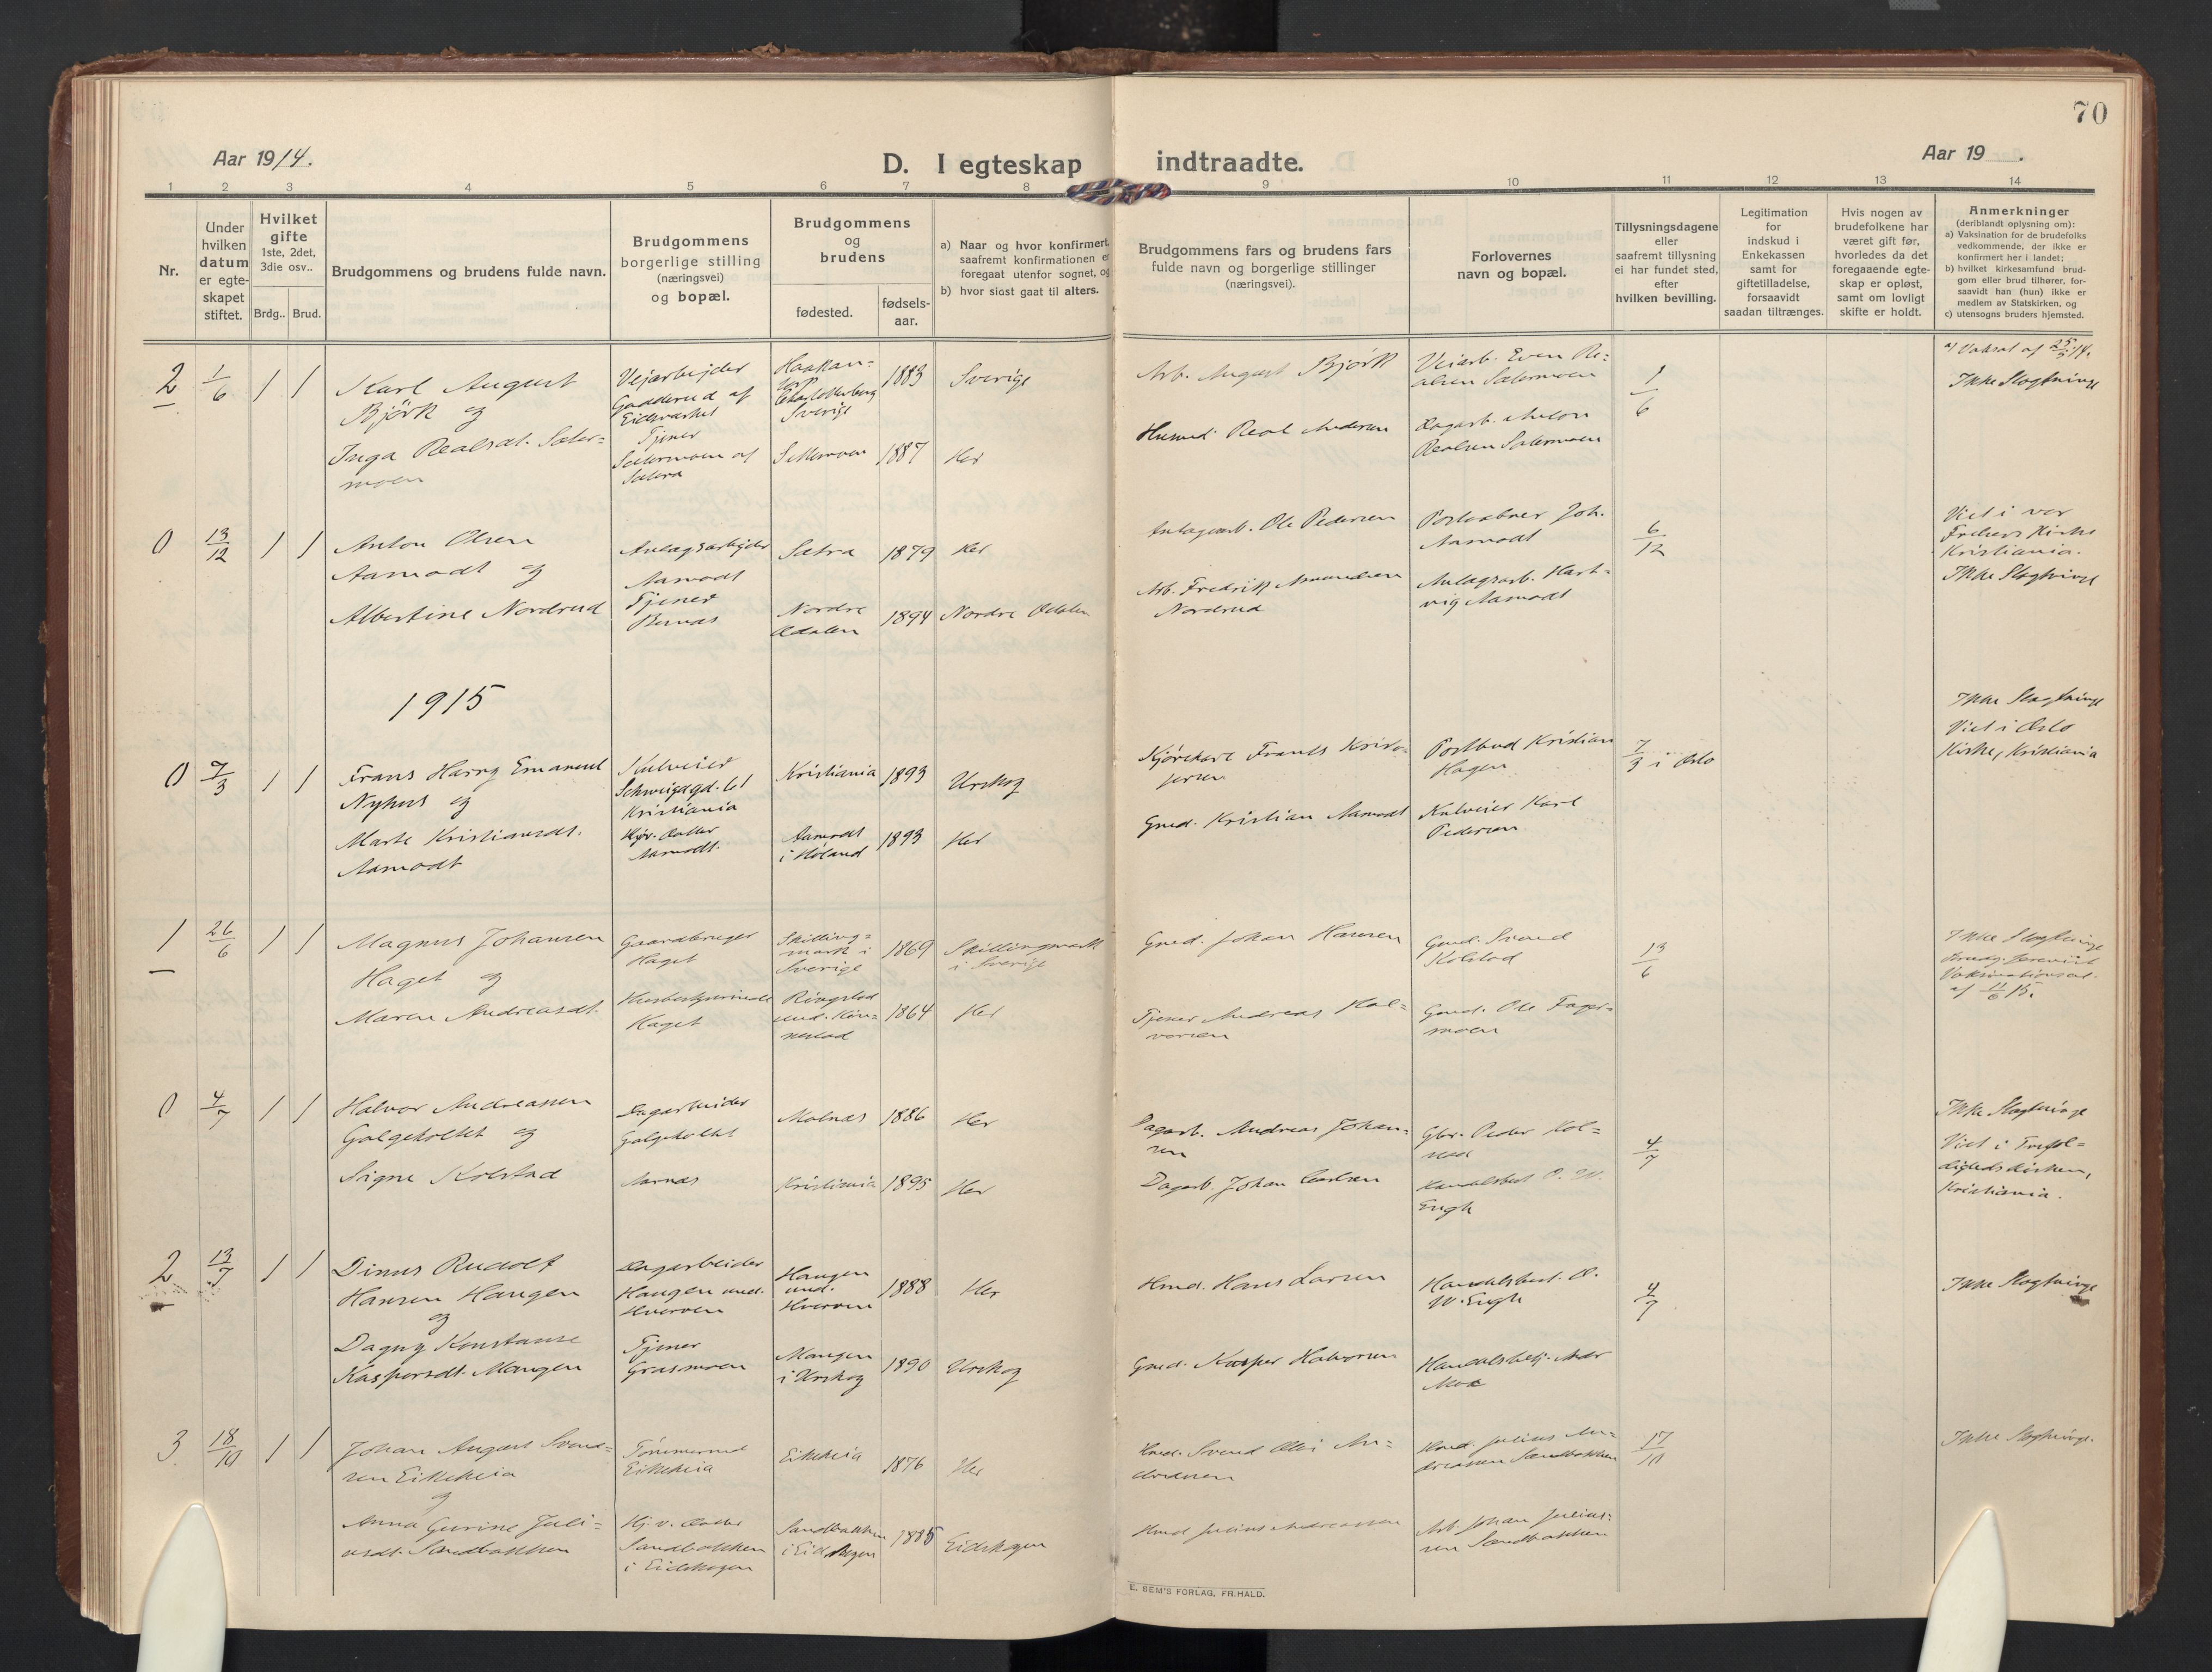 70
Aar 1914.
D. I egteskap indtraadte.
Aar 19 .
1 2 3 4 5 6 7 8 9 10 11 12 13 14
Nr.
Under
hvilken
datum
er egte-
skapet
stiftet.
Hvilket
gifte
1ste, 2det,
3die osv..
Brdg.. Brud.
Brudgommens og brudens fulde navn.
Brudgommens
borgerlige stilling
(næringsvei)
og bopæl.
Brudgommens
og
brudens
fødested.
fødsels-
aar.
a) Naar og hvor konfirmert,
saafremt konfirmationen er
foregaat utenfor sognet, og
b) hvor sidst gaat til alters.
Brudgommens fars og brudens fars
fulde navn og borgerlige stillinger
(næringsvei).
Forlovernes
navn og bopæl.
Tillysningsdagene
eller
saafremt tillysning
ei har fundet sted,
efter
hvilken bevilling.
Legitimation
for
indskud i
Enkekassen
samt for
giftetilladelse,
forsaavidt
saadan tiltrænges.
Hvis nogen av
brudefolkene har
været gift før,
hvorledes da det
foregaaende egte-
skap er opløst,
samt om lovligt
skifte er holdt.
Anmerkninger
(deriblandt oplysning om):
a) Vaksination for de brudefolks
vedkommende, der ikke er
konfirmert her i landet;
b) hvilket kirkesamfund brud-
gom eller brud tilhører, for-
saavidt han (hun) ikke er
medlem av Statskirken, og
c) utensogns bruders hjemsted.
2 1/6 1 1
Karl August
Björk og
Inga Realsdt. Sæter-
moen
Veiarbeider
Gadderud af
Tjener
Sætermoen af
Sætra
Charlottenberg
Sverige
Sætermoen
1883
1887
Sverige
Her
Arb. August Björk
Husmd. Real Andersen
Veiarb. Even Re-
alsen Sætermoen
Dagarb. Anton
Realsen Sætermoen
1/6
a) Vaksat af 25/5 14.
Ikke Slegtninge
0 13/12 1 1
Anton Olsen
Aamodt og
Albertine Nordrud
Anlægsarbeider
Aamodt
Tjener
Sætra
Nordre
Odalen
1879
1894
Her
Nordre Odalen
Anlægsarb. Ole Pedersen
Arb. Fredrik Amundsen
Nordrud
Postaabner Joh.
Aamodt
Anlægsarb. Hart-
vig Aamodt
6/12
Viet i vor
Frelsers Kirke
Kristiania.
Ikke Slegtninge
1915
0 7/3 1 1
Frans Harry Emanuel
Nyhus og
Marte Kristiansdt.
Aamodt
Kulveier
Schweigagd. 61
Kristiania
Hjv. datter
Aamodt.
Kristiania
Aamodt
i Höland
1893
1893
Urskog
Her
Kjörekarl Frants Kristo-
fersen
Gmd. Kristian Aamodt
Postbud Kristian
Hagen
Kulveier Karl
Pedersen
7/3 i Oslo
Ikke Slegtninge
Viet i Oslo
Kirke, Kristiania
1 26/6 1 1
Magnus Johansen
Haget og
Maren Andreasdt.
Gaardbruger
Haget
Husbestyrerinde
Haget
Skilling-
mark i
Sverige
Ringstad
1869
1864
Skillingmark
i Sverige
Her
Gmd. Johan Hansen
Tjener Andreas Hal-
vorsen
Gmd. Svend
Kolstad
Gmd. Ole Fager-
moen
13/6
Ikke Slegtninge
Brudg. forevist
Vaksinationsat.
af 11/6 15.
0 4/7 1 1
Halvor Andreassen
Galgeholtet og
Signe Kolstad
Dagarbeider
Galgeholtet
Aarnæs
Molnæs
Kristiania
1886
1895
Her
Her
Dagarb. Andreas Johan-
sen
Dagarb. Johan Carlsen
Gbr. Peder Kol-
stad
Handelsbest. O. W.
Engh
4/7
Ikke Slegtninge
Viet i Trefol-
dighedskirken,
Kristiania.
2 13/7 1 1
Dinus Rudolf
Hansen Haugen
og
Dagny Konstanse
Kaspersdt. Mangen
Dagarbeider
Haugen und.
Hverven
Tjener
Grasmoen
Haugen
und.
Hverven
Mangen
i Urskog
1888
1890
Her
Urskog
Hmd. Hans Larsen
Gmd. Kasper Halvorsen
Handelsbest. O.
W. Engh
Handelsbetj. Aksel
Moe
4/7
Ikke Slegtninge
3 18/10 1 1
Johan August Svend-
sen Eikeheia
og
Anna Gurine Juli-
usdt. Sandbakken
Tömmermd
Eikeheia
Hj. v. datter
Sandbakken
i Eidskogen
Eikeheia
Sandbakken
i Eidskogen
1876
1885
Her
Eidskogen
Hmd. Svend Olai An-
dersen
Hmd Julius Andreassen
Hmd. Julius An-
dreassen Sandbakken
Arb. Johan Julius-
sen Sandbakken
17/10
Ikke Slegtninge.
E. SEM'S FORLAG, FR.HALD.